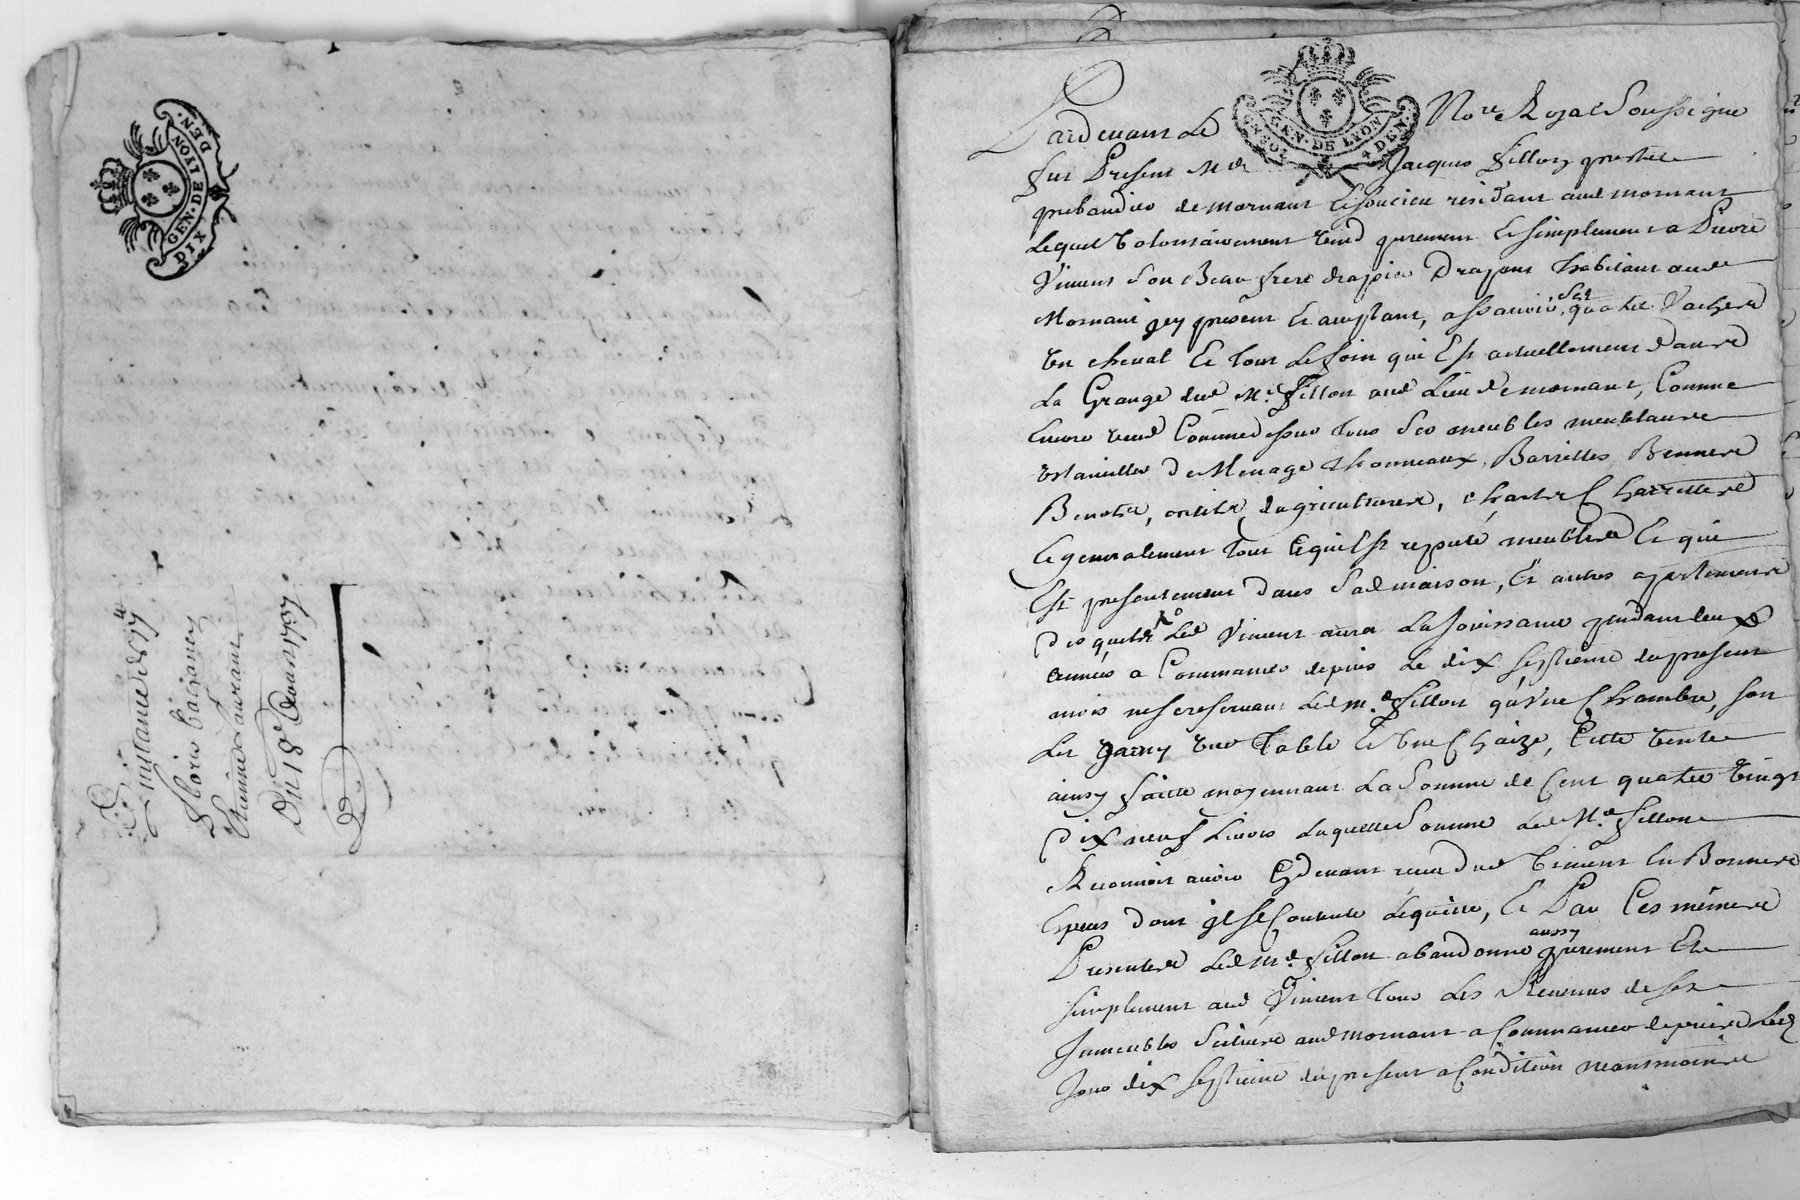 GEN·DE LYON
DIX DEN.
Quittance de 97 lt
Etienne Laurant
Du 18e Aoust 1737
GEN·DE LYON
4 DEN.
Pardevant Le Nore Royal Soussigne
fut Present Mre Jacques fillon prestre
prebandier de mornant et soucieu residant aud mornant
Lequel Volontairement vend purement et simplement a Pierre
Vincent son Beau frere drapier Drapant habitant aud
Mornant jcy present et acceptant, assavoir, ses quatre Vaches
un cheval et tout Le foin qui Est actuellement dans
La Grange dud Mre fillon aud Lieu de mornant, Comme
Encore vend Comme dessus tous ses meubles meublants
Ustancilles de Menage thonneaux, Barrilles, Bennes
Benots, outils dagricultures, chards Charrettes
Et generalement tout ce qui Est reputé meubles Et qui
Est presentement dans Sad maison, Et autres apartements
Desquels Led Vincent aura La Jouissance pendant deux
années a Commancer depuis Le dix septieme du present
mois ne se reservant Led Mre fillon qu'une Chambre, son
Lit garny une Table Et une Chaize, Cette vente
ainsy faitte moyennant La Somme de Cent quatre vingt
Dix neuf Livres Laquelle Somme Led Mre fillon
Reconnoit avoir Cydevant receu dud Vincent En Bonnes
Especes dont jl se Contente Lequitte, Et Par Ces mêmes
Presentes Led Mre fillon abandonne aussy purement Et
simplement aud Vincent tous Les Revenus de ses
Jmmeubles Scitués aud mornant a Commancer depuis Led
Jour dix septieme du present a Condition neantmoins